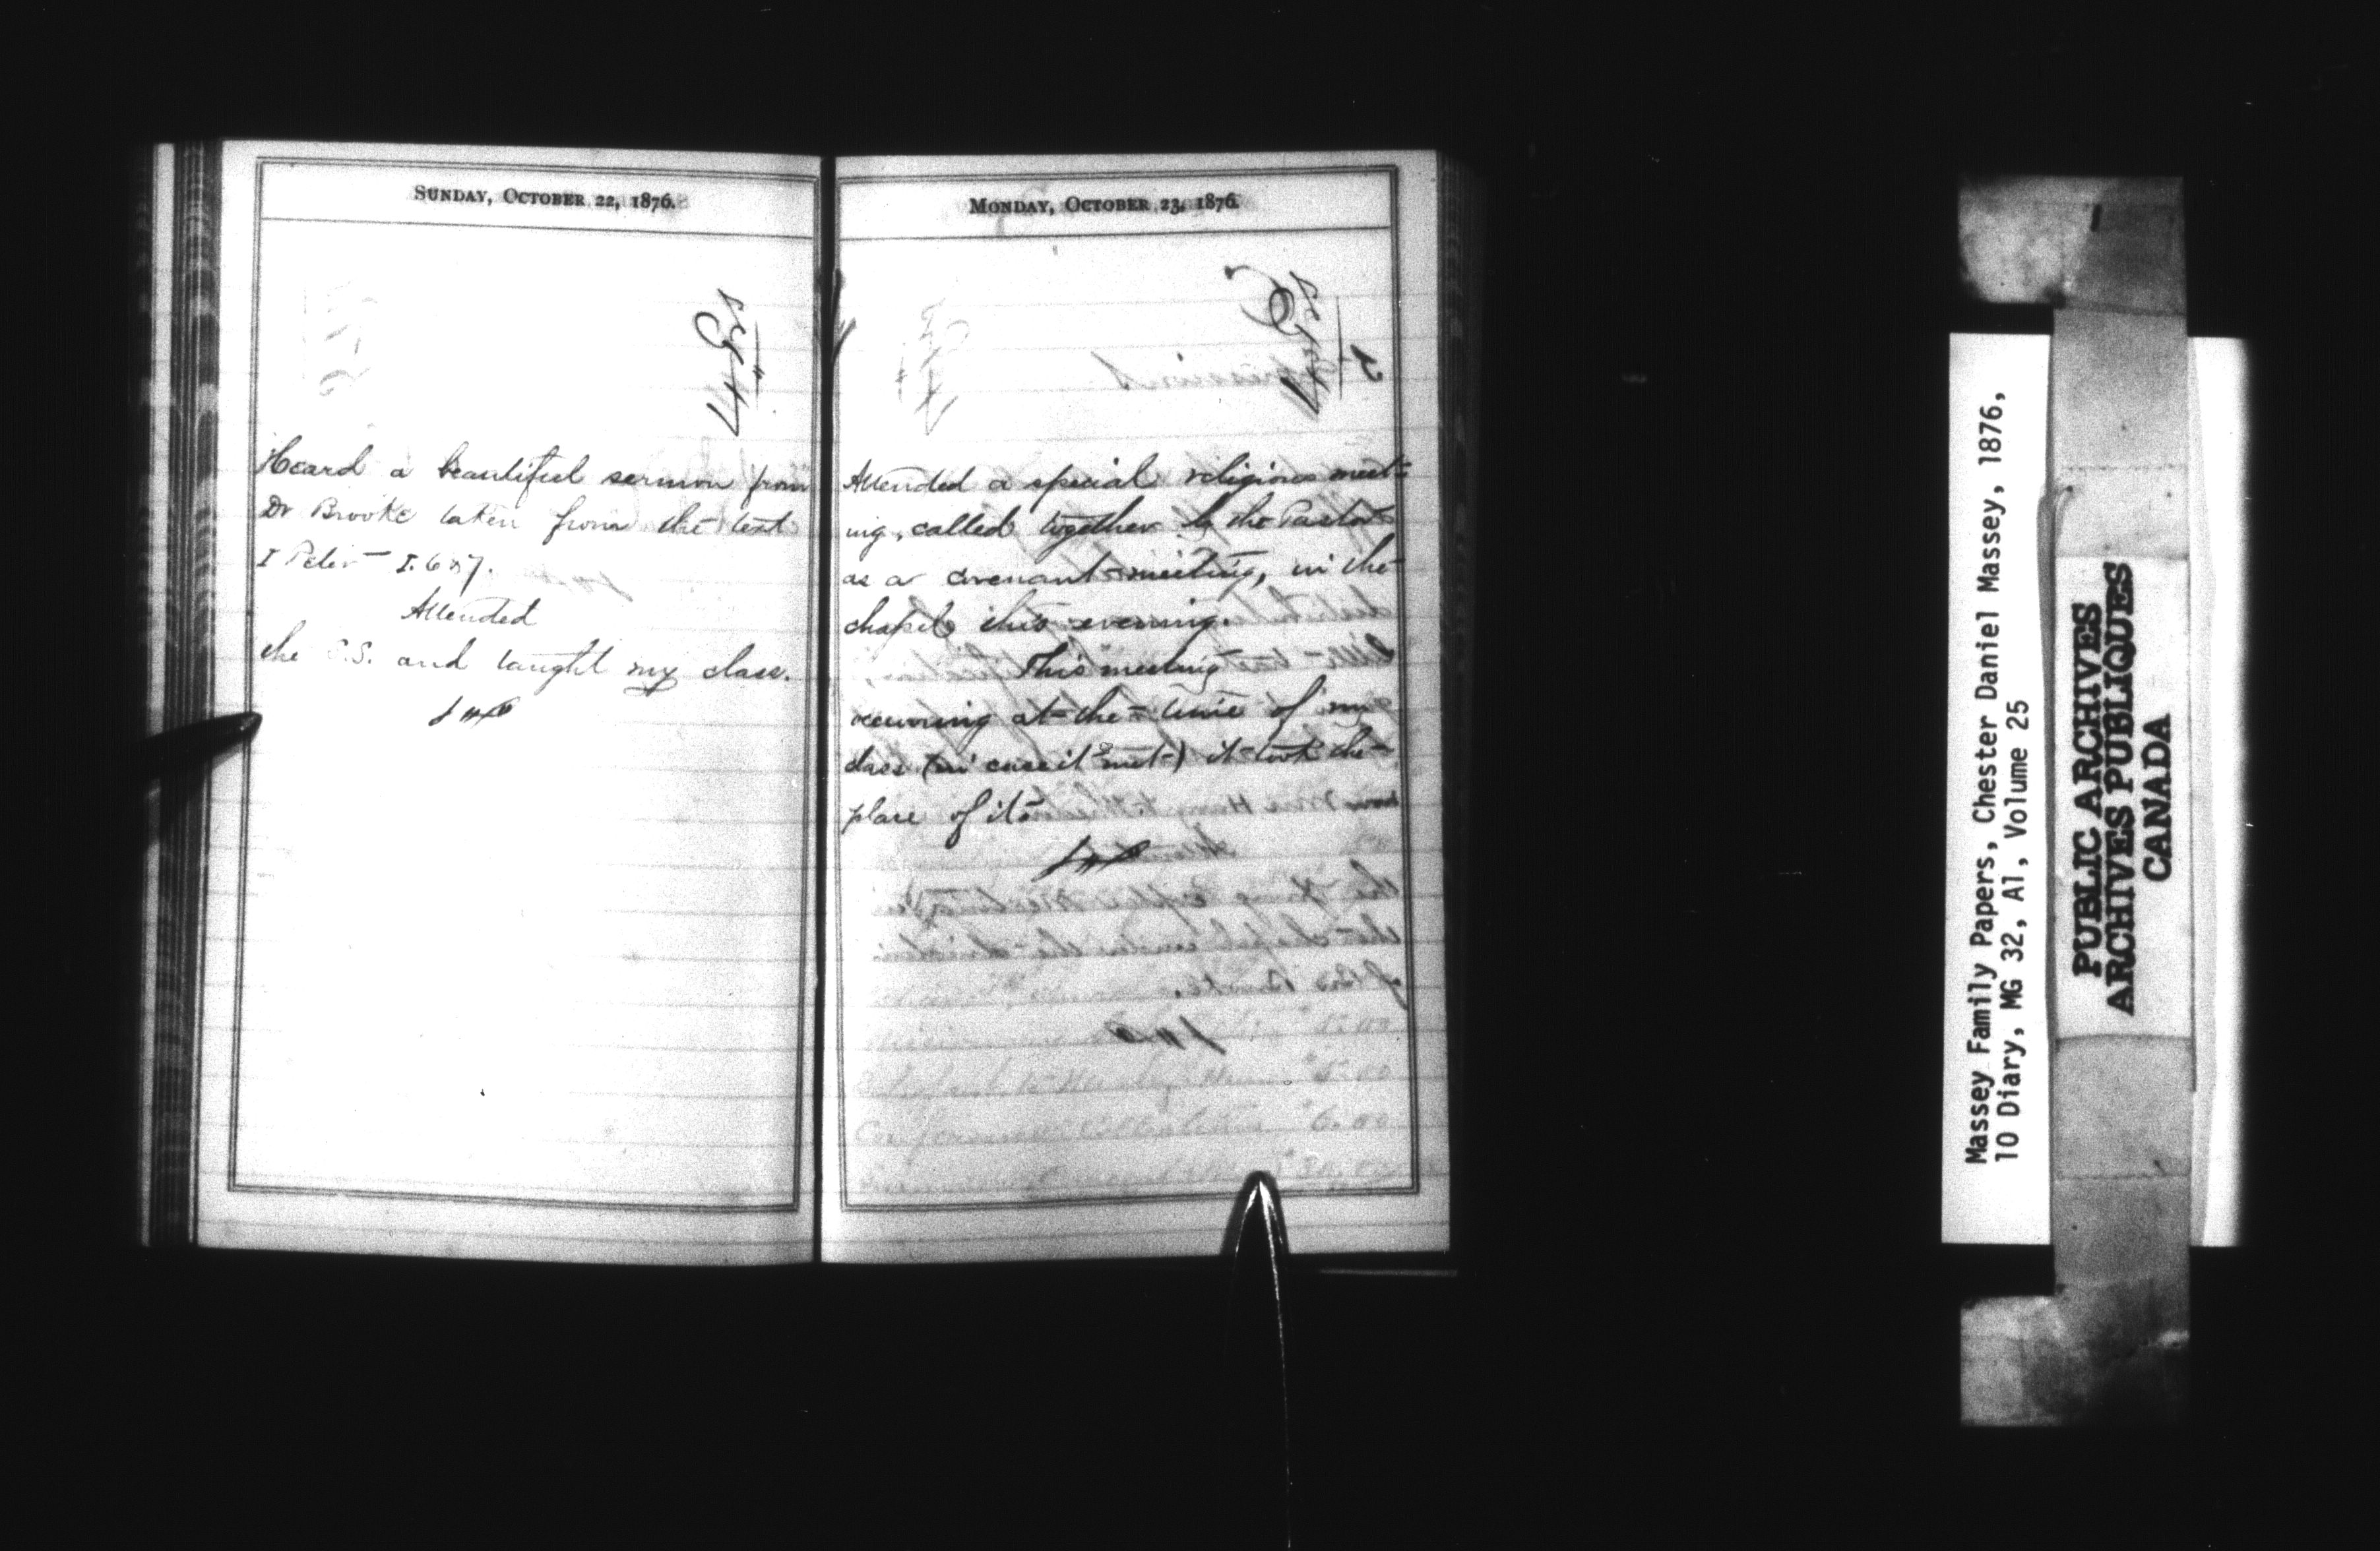 SUNDAY, OCTOBER 22, 1876.
Heard a beautiful sermon from
Dr Brooke taken from the text
I Peter I. 6 & 7.
Attended
the S.S. and taught my class.
MONDAY, OCTOBER 23, 1876.
Attended a special religious meet-
ing, called together by the Pastor
as a covenant meeting, in the
chapel this evening.
This meeting
occurring at the time of my
class (in case it met) it took the
place of it.
Massey Family Papers, Chester Daniel Massey, 1876,
10 Diary, MG 32, A1, Volume 25
PUBLIC ARCHIVES
ARCHIVES PUBLIQUES
CANADA